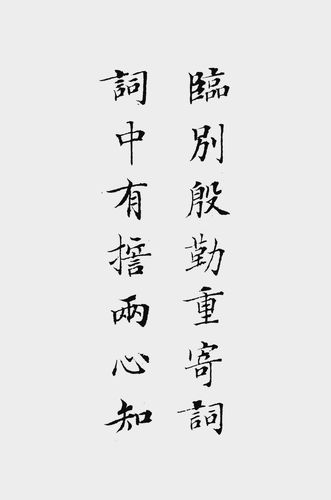 臨別殷勤重寄詞
詞中有誓兩心知